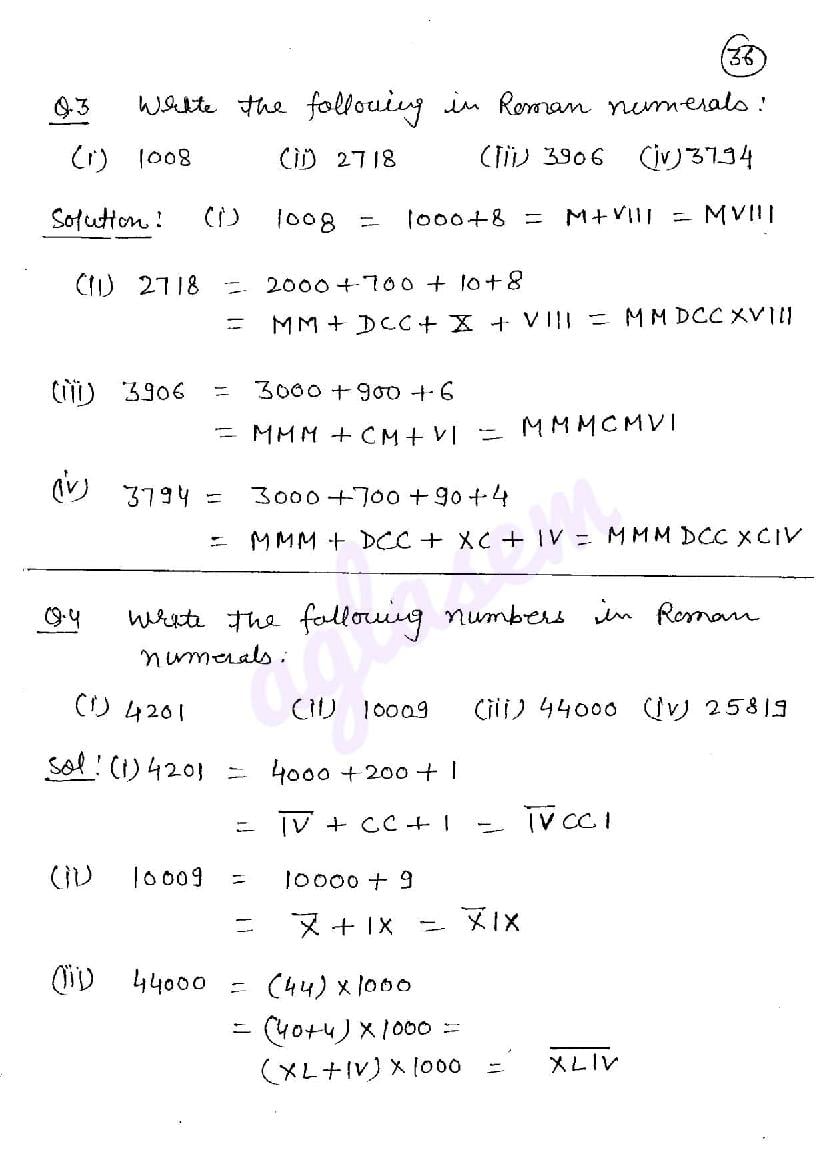 36
Q.3 Write the following in Roman numerals:
(i) 1008 (ii) 2718 (iii) 3906 (iv) 3794
Solution: (i) 1008 = 1000+8 = M+VIII = MVIII
(ii) 2718 = 2000+700+10+8
= MM+DCC+X+VIII = MMDCCXVIII
(iii) 3906 = 3000+900+6
= MMM+CM+VI = MMMCMVI
(iv) 3794 = 3000+700+90+4
= MMM+DCC+XC+IV = MMMDCCXCIV
aglasem
Q.4 Write the following numbers in Roman
numerals:
(i) 4201 (ii) 10009 (iii) 44000 (iv) 25819
Sol: (i) 4201 = 4000+200+1
= I̅V̅+CC+I = I̅V̅CCI
(ii) 10009 = 10000+9
= X̅+IX = X̅IX
(iii) 44000 = (44)×1000
= (40+4)×1000 =
(XL+IV)×1000 = X̅L̅I̅V̅